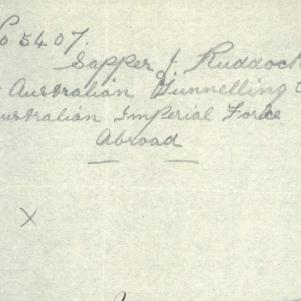 No 5407.
Sapper J. Ruddock
Australian Tunnelling
Australian Imperial Force
Abroad
X